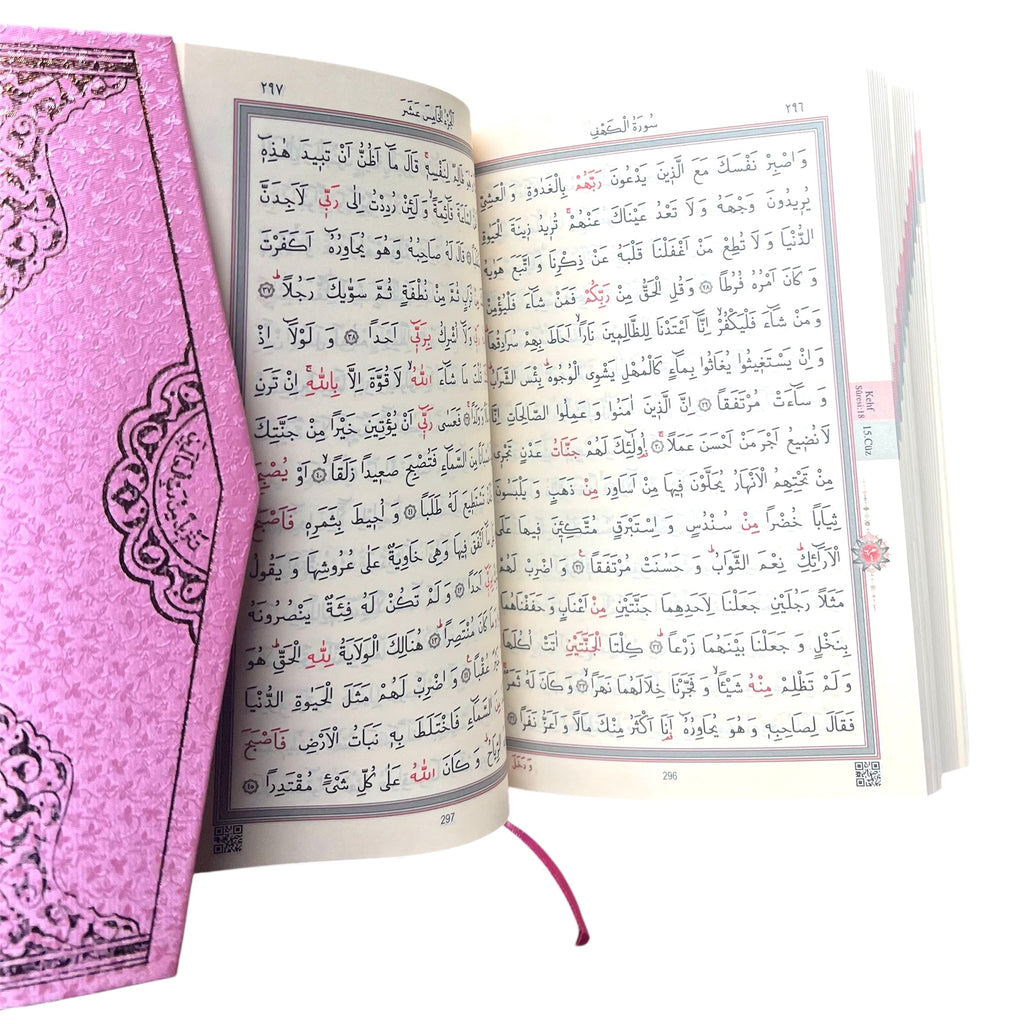 ٢٩٦
سُورَةُ الْكَهْفِ
وَاصْبِرْ نَفْسَكَ مَعَ الَّذ۪ينَ يَدْعُونَ رَبَّهُمْ بِالْغَدٰوةِ وَالْعَشِيِّ
يُر۪يدُونَ وَجْهَهُ وَلَا تَعْدُ عَيْنَاكَ عَنْهُمْۚ تُر۪يدُ ز۪ينَةَ الْحَيٰوةِ
الدُّنْيَا وَلَا تُطِعْ مَنْ اَغْفَلْنَا قَلْبَهُ عَنْ ذِكْرِنَا وَاتَّبَعَ هَوٰيهُ
وَكَانَ اَمْرُهُ فُرُطاً ﴿٢٨﴾ وَقُلِ الْحَقُّ مِنْ رَبِّكُمْ فَمَنْ شَٓاءَ فَلْيُؤْمِنْ
وَمَنْ شَٓاءَ فَلْيَكْفُرْۙ اِنَّٓا اَعْتَدْنَا لِلظَّالِم۪ينَ نَاراًۙ اَحَاطَ بِهِمْ سُرَادِقُهَاۜ
وَاِنْ يَسْتَغ۪يثُوا يُغَاثُوا بِمَٓاءٍ كَالْمُهْلِ يَشْوِي الْوُجُوهَۜ بِئْسَ الشَّرَابُۜ
وَسَٓاءَتْ مُرْتَفَقاً ﴿٢٩﴾ اِنَّ الَّذ۪ينَ اٰمَنُوا وَعَمِلُوا الصَّالِحَاتِ اِنَّا
لَا نُض۪يعُ اَجْرَ مَنْ اَحْسَنَ عَمَلاًۚ ﴿٣٠﴾ اُو۬لٰٓئِكَ لَهُمْ جَنَّاتُ عَدْنٍ تَجْر۪ي
مِنْ تَحْتِهِمُ الْاَنْهَارُ يُحَلَّوْنَ ف۪يهَا مِنْ اَسَاوِرَ مِنْ ذَهَبٍ وَيَلْبَسُونَ
ثِيَاباً خُضْراً مِنْ سُنْدُسٍ وَاِسْتَبْرَقٍ مُتَّكِـ۪ٔينَ ف۪يهَا عَلَى
الْاَرَٓائِكِۜ نِعْمَ الثَّوَابُۜ وَحَسُنَتْ مُرْتَفَقاً۟ ﴿٣١﴾ وَاضْرِبْ لَهُمْ
مَثَلاً رَجُلَيْنِ جَعَلْنَا لِاَحَدِهِمَا جَنَّتَيْنِ مِنْ اَعْنَابٍ وَحَفَفْنَاهُمَا
بِنَخْلٍ وَجَعَلْنَا بَيْنَهُمَا زَرْعاًۜ ﴿٣٢﴾ كِلْتَا الْجَنَّتَيْنِ اٰتَتْ اُكُلَهَا
وَلَمْ تَظْلِمْ مِنْهُ شَيْـٔاًۙ وَفَجَّرْنَا خِلَالَهُمَا نَهَراًۙ ﴿٣٣﴾ وَكَانَ لَهُ ثَمَرٌۚ
فَقَالَ لِصَاحِبِه۪ وَهُوَ يُحَاوِرُهُٓ اَنَا۬ اَكْثَرُ مِنْكَ مَالاً وَاَعَزُّ نَفَراً ﴿٣٤﴾
296
Kehf
Sûresi:18
15.Cüz
٢٩٧
اَلْجُزْءُ الْخَامِسَ عَشَرَ
ظَالِمٌ لِنَفْسِه۪ۚ قَالَ مَٓا اَظُنُّ اَنْ تَب۪يدَ هٰذِه۪ٓ
قَٓائِمَةًۙ وَلَئِنْ رُدِدْتُ اِلٰى رَبّ۪ي لَاَجِدَنَّ
قَالَ لَهُ صَاحِبُهُ وَهُوَ يُحَاوِرُهُٓ اَكَفَرْتَ
تُرَابٍ ثُمَّ مِنْ نُطْفَةٍ ثُمَّ سَوّٰيكَ رَجُلاًۜ ﴿٣٧﴾
وَلَٓا اُشْرِكُ بِرَبّ۪ٓي اَحَداً ﴿٣٨﴾ وَلَوْلَٓا اِذْ
قُلْتَ مَا شَٓاءَ اللّٰهُۙ لَا قُوَّةَ اِلَّا بِاللّٰهِۚ اِنْ تَرَنِ
وَوَلَداًۚ ﴿٣٩﴾ فَعَسٰى رَبّ۪ٓي اَنْ يُؤْتِيَنِ خَيْراً مِنْ جَنَّتِكَ
مِنَ السَّمَٓاءِ فَتُصْبِحَ صَع۪يداً زَلَقاًۙ ﴿٤٠﴾ اَوْ يُصْبِحَ
تَسْتَط۪يعَ لَهُ طَلَباً ﴿٤١﴾ وَاُح۪يطَ بِثَمَرِه۪ فَاَصْبَحَ
مَٓا اَنْفَقَ ف۪يهَا وَهِيَ خَاوِيَةٌ عَلٰى عُرُوشِهَا وَيَقُولُ
بِرَبّ۪ٓي اَحَداً ﴿٤٢﴾ وَلَمْ تَكُنْ لَهُ فِئَةٌ يَنْصُرُونَهُ
وَمَا كَانَ مُنْتَصِراًۜ ﴿٤٣﴾ هُنَالِكَ الْوَلَايَةُ لِلّٰهِ الْحَقِّۜ هُوَ
عُقْباً۟ ﴿٤٤﴾ وَاضْرِبْ لَهُمْ مَثَلَ الْحَيٰوةِ الدُّنْيَا
مِنَ السَّمَٓاءِ فَاخْتَلَطَ بِه۪ نَبَاتُ الْاَرْضِ فَاَصْبَحَ
الرِّيَاحُۜ وَكَانَ اللّٰهُ عَلٰى كُلِّ شَيْءٍ مُقْتَدِراً ﴿٤٥﴾
297